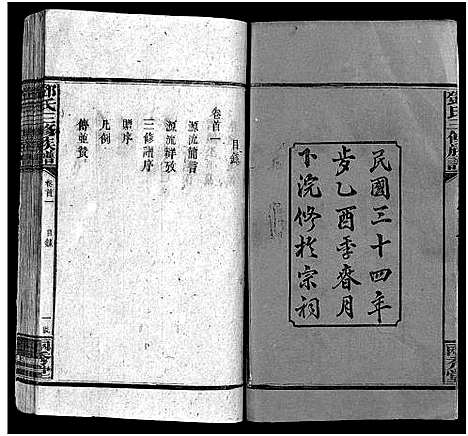 民國三十四年
歩乙酉季春月
下浣修於宗祠
鄧氏三修族譜
目錄
卷首一
源流補音
源流辯效
三修譜序
贈序
凡例
傳並贊
鄧氏三修族譜
卷首一
目錄
一